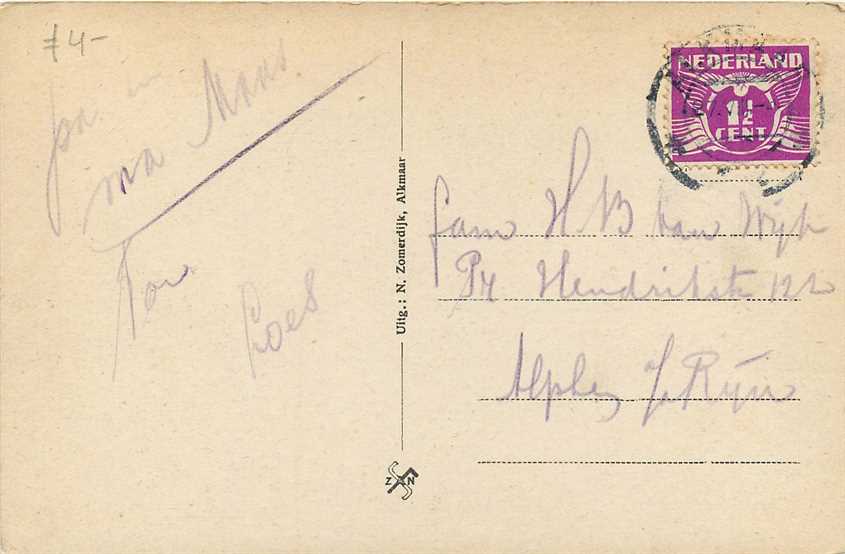 f 4-
pa en
ma Maas.
Ton
Coes
Uitg.: N. Zomerdijk, Alkmaar
Z N
NEDERLAND
1½
CENT
fam H B van Wijk
Pr Hendrikstr 122
Alphen a/d Rijn